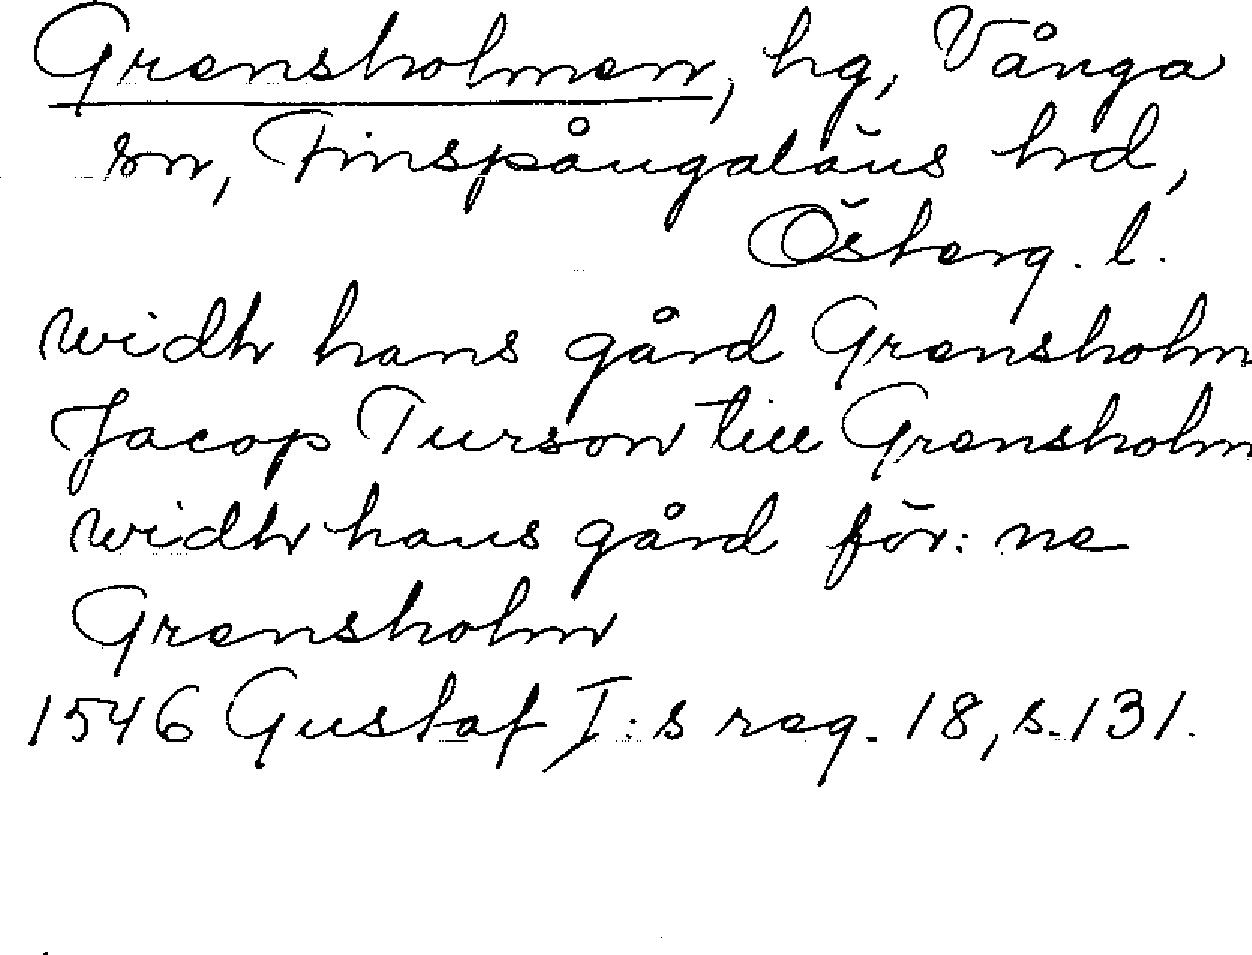 Grensholmen, hg, Vånga
sn, Finspångaläns hd,
Österg. l.
widh hans gård Grensholm
Jacop Turson till Grensholm
widh hans gård för: ne
Grensholm
1546 Gustaf I:s reg. 18, s. 131.